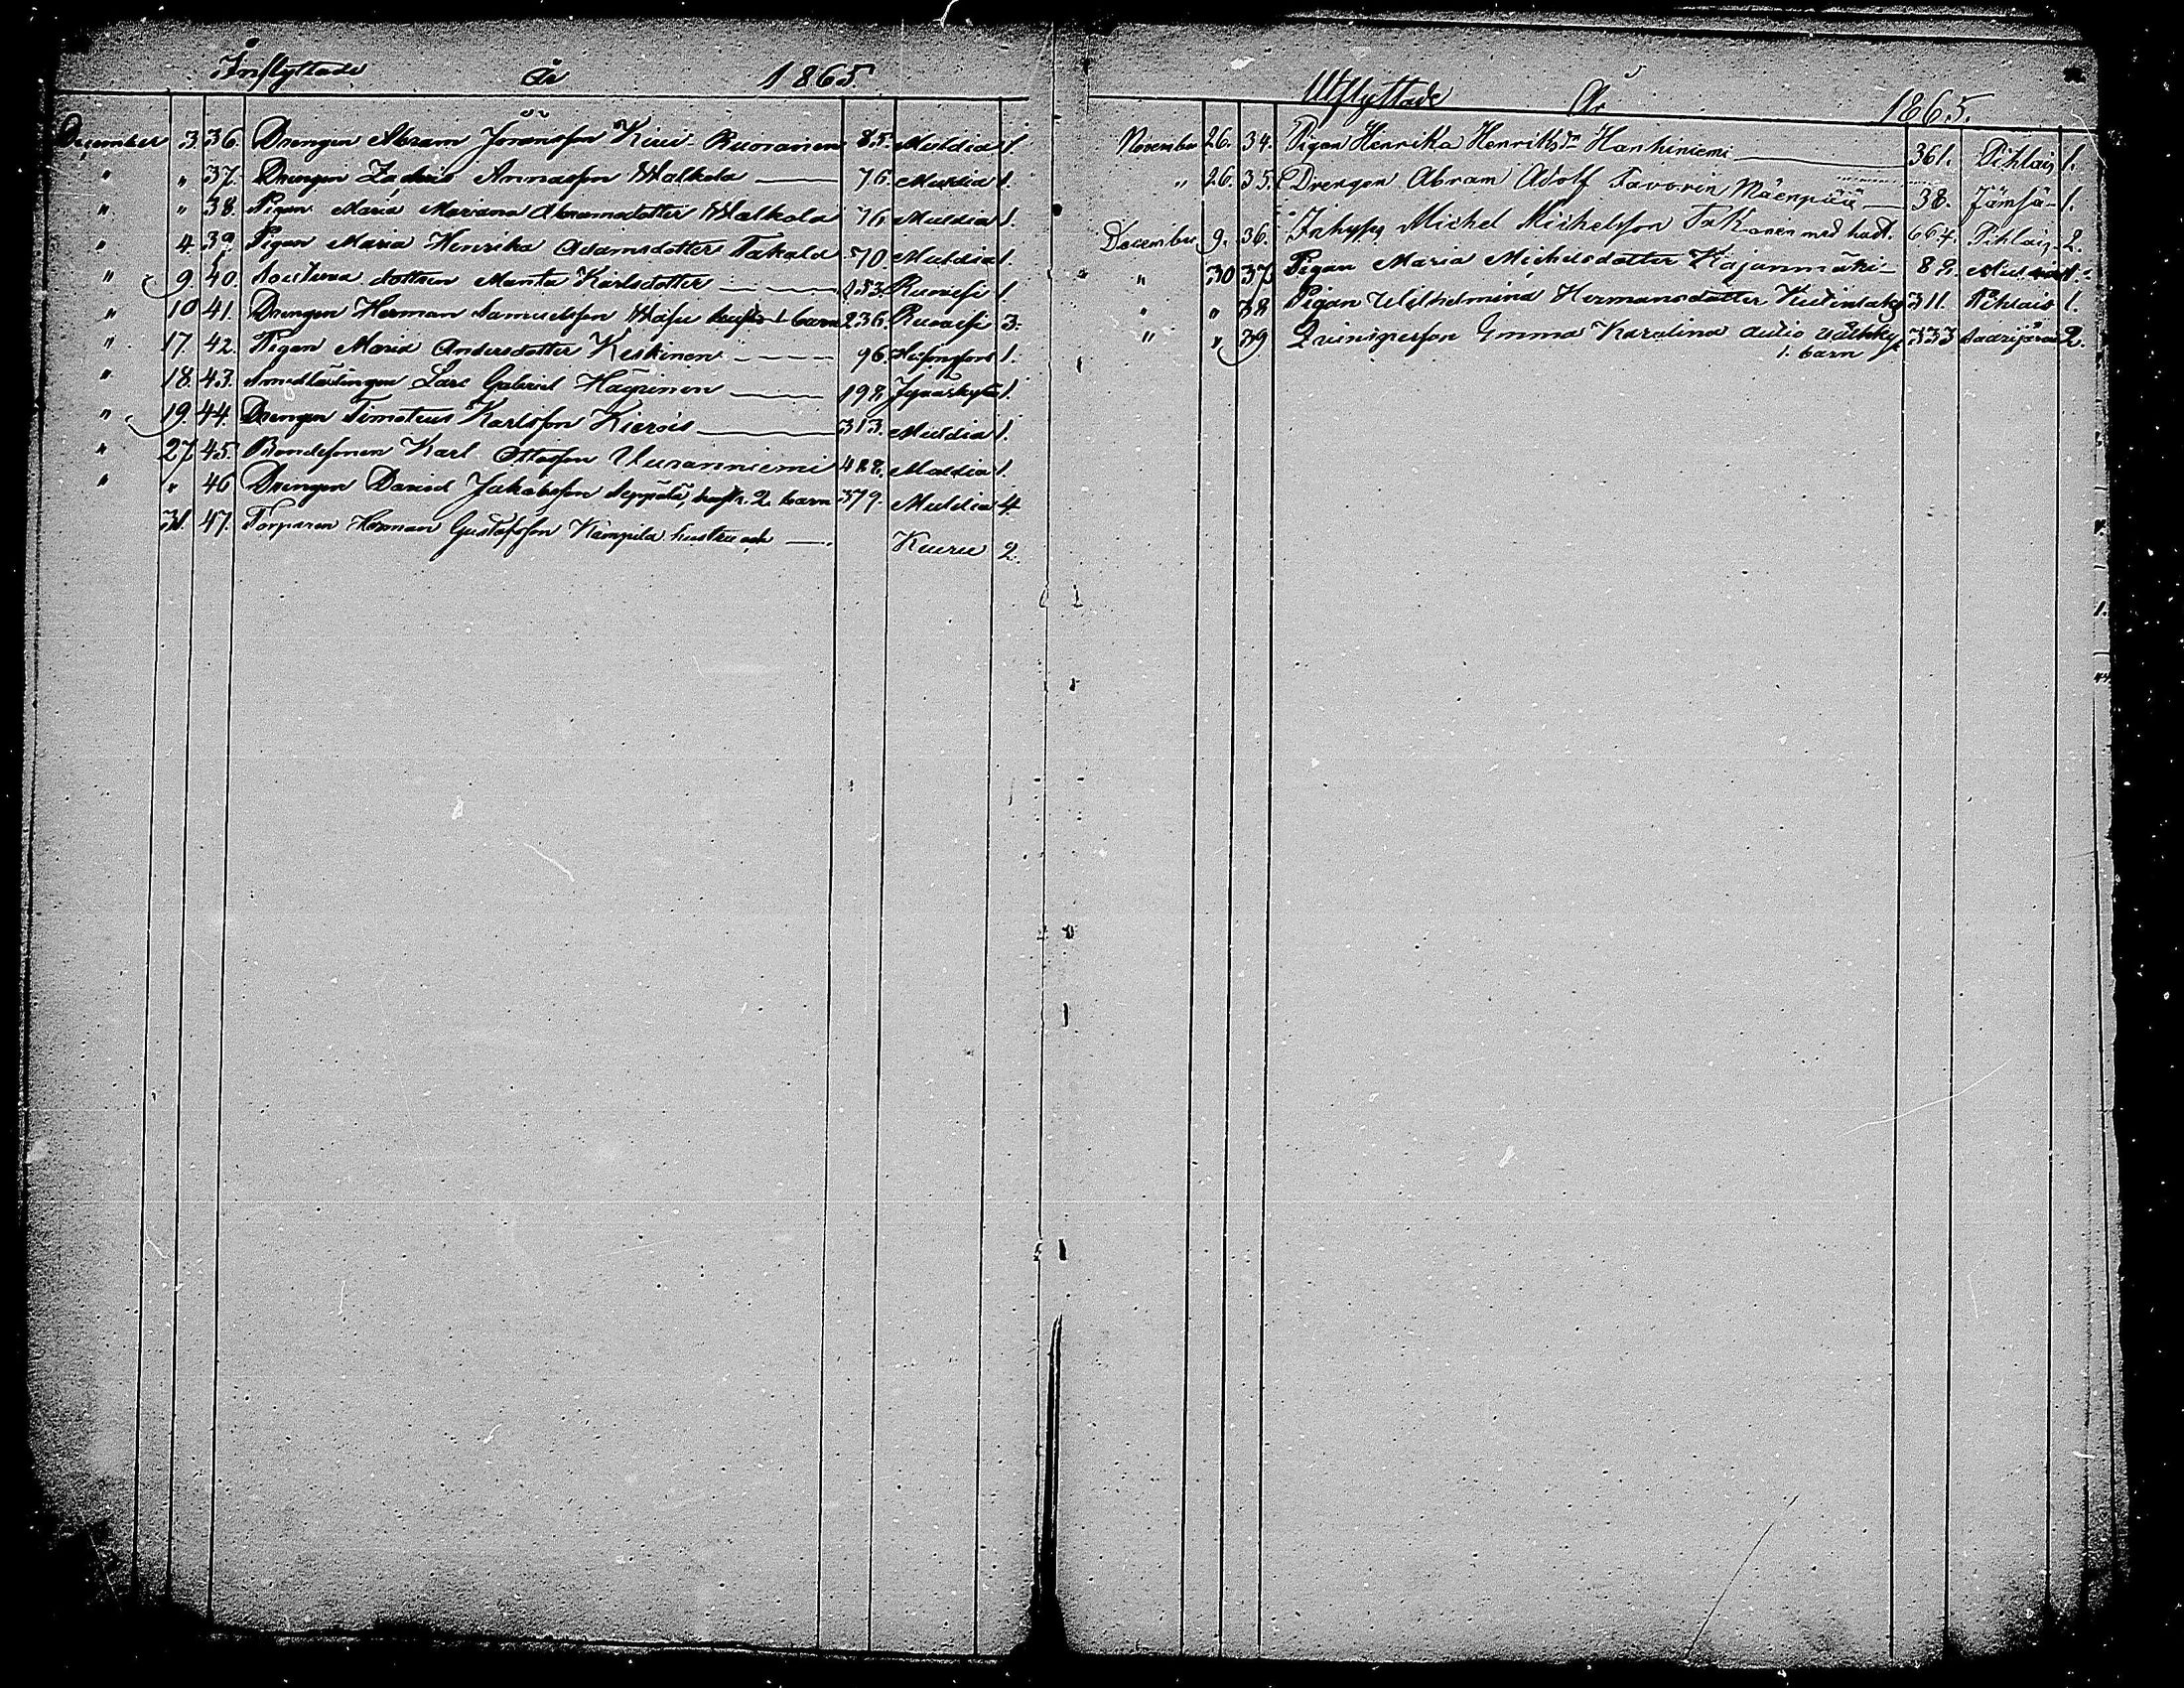 Inflyttade År 1865.
December 3. 36. Drengen Abram Jöransson Kiui-Ruoranen 85. Multia 1.
" " 37. Drengen Annasson Walkola 76. Multia 1.
" " 38. Pigan Maria Mariana Abramsdotter Walkola 76. Multia 1.
" 4. 39. Pigan Maria Henrika Adamsdotter Takala 70. Multia 1.
" 9. 40. dottren Manta Karlsdotter 153. Ruovesi 1
" 10 41. Drengen Herman Samuelsson 1 barn 236. Ruovesi 3.
" 17. 42. Pigan Maria Andersdotter Keskinen 96. Helsingfors 1.
" 18. 43. Smedlärlingen Lars Gabriel Häyrinen 198. Jyväskylä 1.
" 19. 44. Drengen Timoteus Karlsson 313. Multia 1.
" 27. 45. Bondesonen Karl Ottosson Uusanniemi 428. Multia 1.
" " 46 Drengen David Jakobsson Seppälä, hust. 2 barn 379. Multia 4.
31. 47. Torparen Herman Gustafsson Kämpilä hustru och Kuru 2.
Utflyttade År 1865.
November 26. 34. Pigan Henrika Henriksdr Hanhiniemi 361. Pihlais 1.
" 26. 35. Drengen Abram Adolf Favorin Mäenpää 38. Jämsä 1.
December 9. 36. Inhyses Michel Michelsson med hust. 664. Pihlais 2.
" 30 37 Pigan Maria Michelsdotter Kajanmäki 82. 1.
" " 38 Pigan Wilhelmina Hermansdotter 311. Pihlais 1.
" " 39 Qvinsperson Emma Karolina 333 Saarijärvi 2.
1. barn